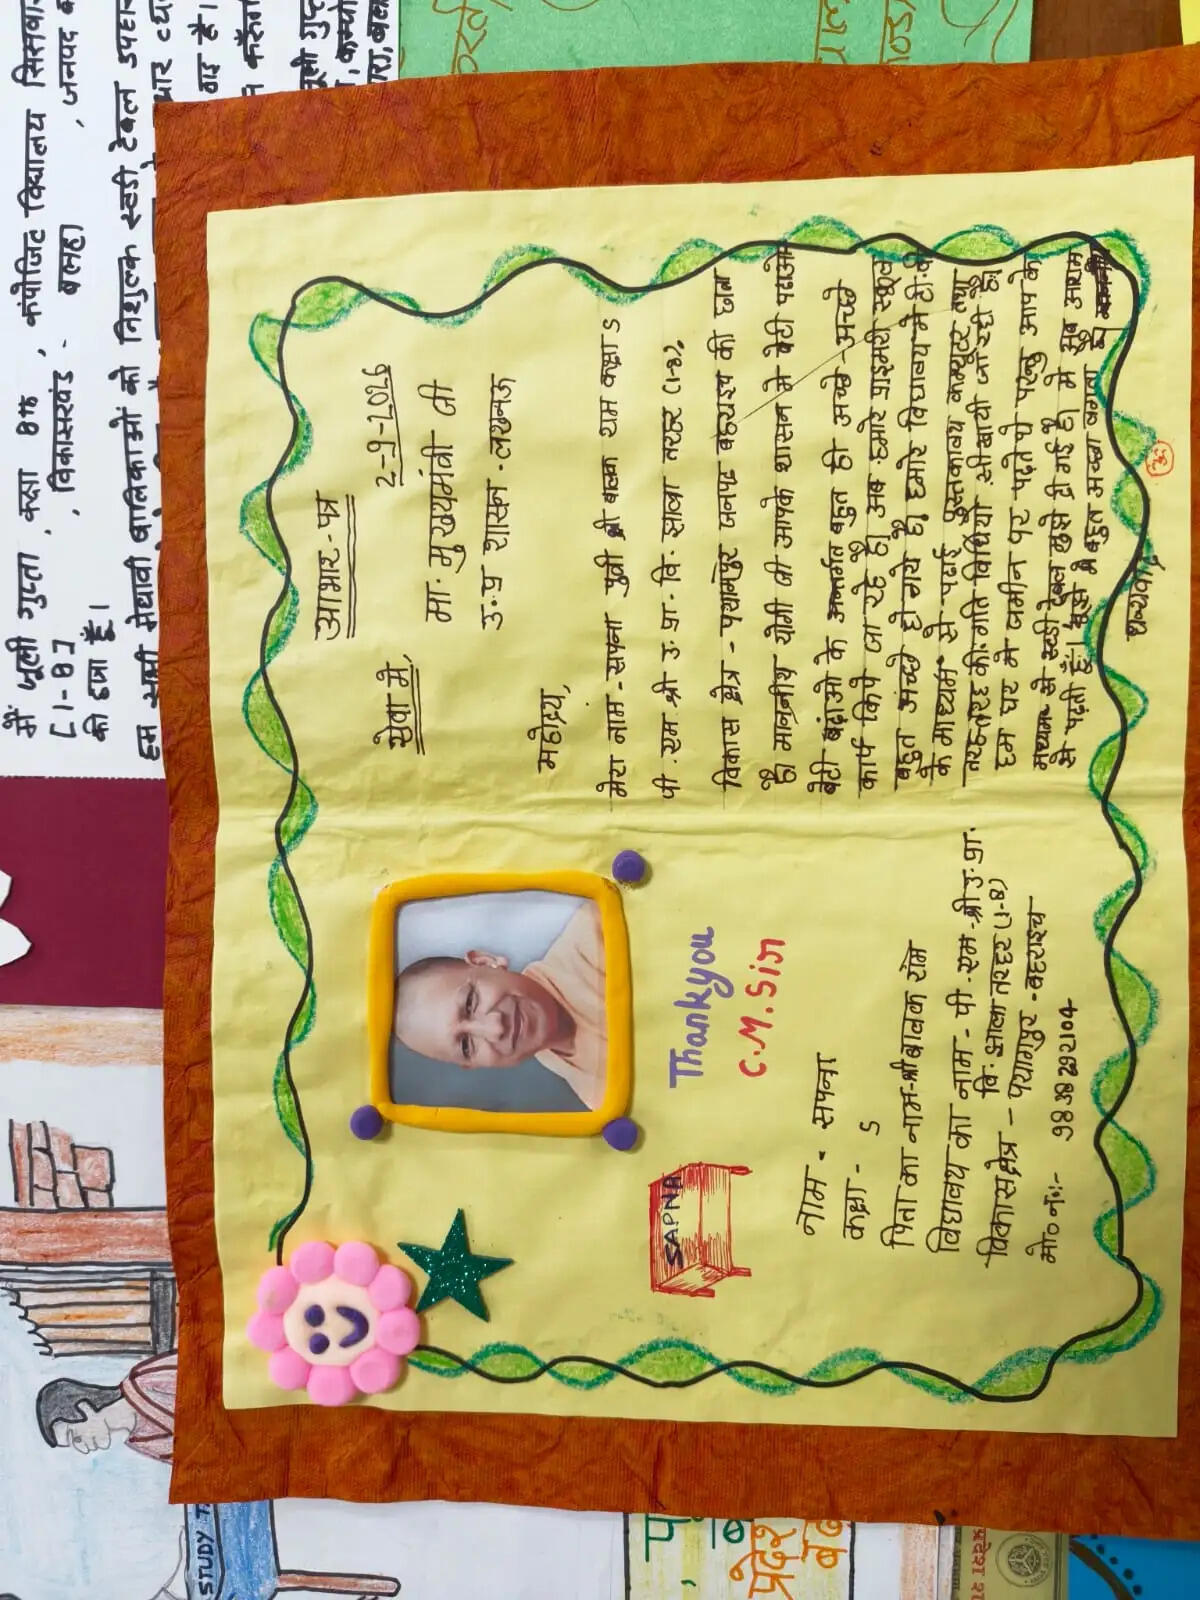 आभार-पत्र
2-9-2026
सेवा में,
मा. मुख्यमंत्री जी
उ.प्र शासन - लखनऊ
महोदय,
मेरा नाम - सपना पुत्री श्री बालक राम कक्षा 5
पी. एम श्री उ. प्रा. वि. झाला तरहर (1-8).
विकास क्षेत्र - पयागपुर जनपद बहराइच की छात्रा
हूँ माननीय योगी जी आपके शासन मे बेटी पढाओ
बेटी बढ़ाओ के अन्तर्गत बहुत ही अच्छे-अच्छे
कार्य किये जा रहे है। अब हमारे प्राइमरी स्कूल
बहुत अच्छे हो गये है। हमारे विद्यालय मे टी.वी
के माध्यम से पढाई पुस्तकालय कम्प्यूटर तथा
तरह-तरह की गति विधिया सीखायी जा रही है।
हम घर मे जमीन पर पढ़ते थे परन्तु आप के
माध्यम से स्टडी टेबल मुझे दी गई है। मे अब आराम
से पढ़ती हूँ। मुझे बहुत अच्छा लगता है।
धन्यवाद
Thankyou
C.M. Sir
SAPNA
नाम - सपना
कक्षा - 5
पिता का नाम - श्री बालक राम
विद्यालय का नाम - पी. एम. श्री उ. प्रा.
वि. झाला तरहर (1-8)
विकास क्षेत्र - पयागपुर - बहराइच
मो० नं०:-
मैं जूली गुप्ता, कक्षा 8th, कंपोजिट विद्यालय
[1-8], विकासखंड - बलहा, जनपद
की छात्रा हूँ।
हम सभी मेधावी बालिकाओं को निशुल्क स्टडी टेबल
STUDY